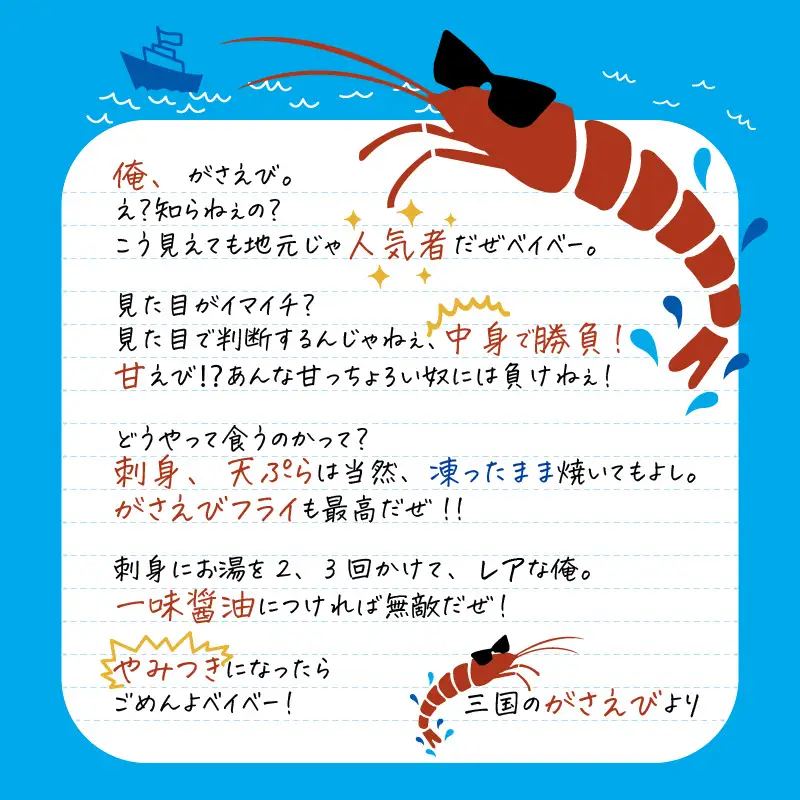 俺、がさえび。
え?知らねぇの?
こう見えても地元じゃ人気者だぜベイベー。
見た目がイマイチ?
見た目で判断するんじゃねぇ、中身で勝負!
甘えび!?あんな甘っちょろい奴には負けねぇ!
どうやって食うのかって?
刺身、天ぷらは当然、凍ったまま焼いてもよし。
がさえびフライも最高だぜ!!
刺身にお湯を2、3回かけて、レアな俺。
一味醤油につければ無敵だぜ!
やみつきになったら
ごめんよベイベー!
三国のがさえびより